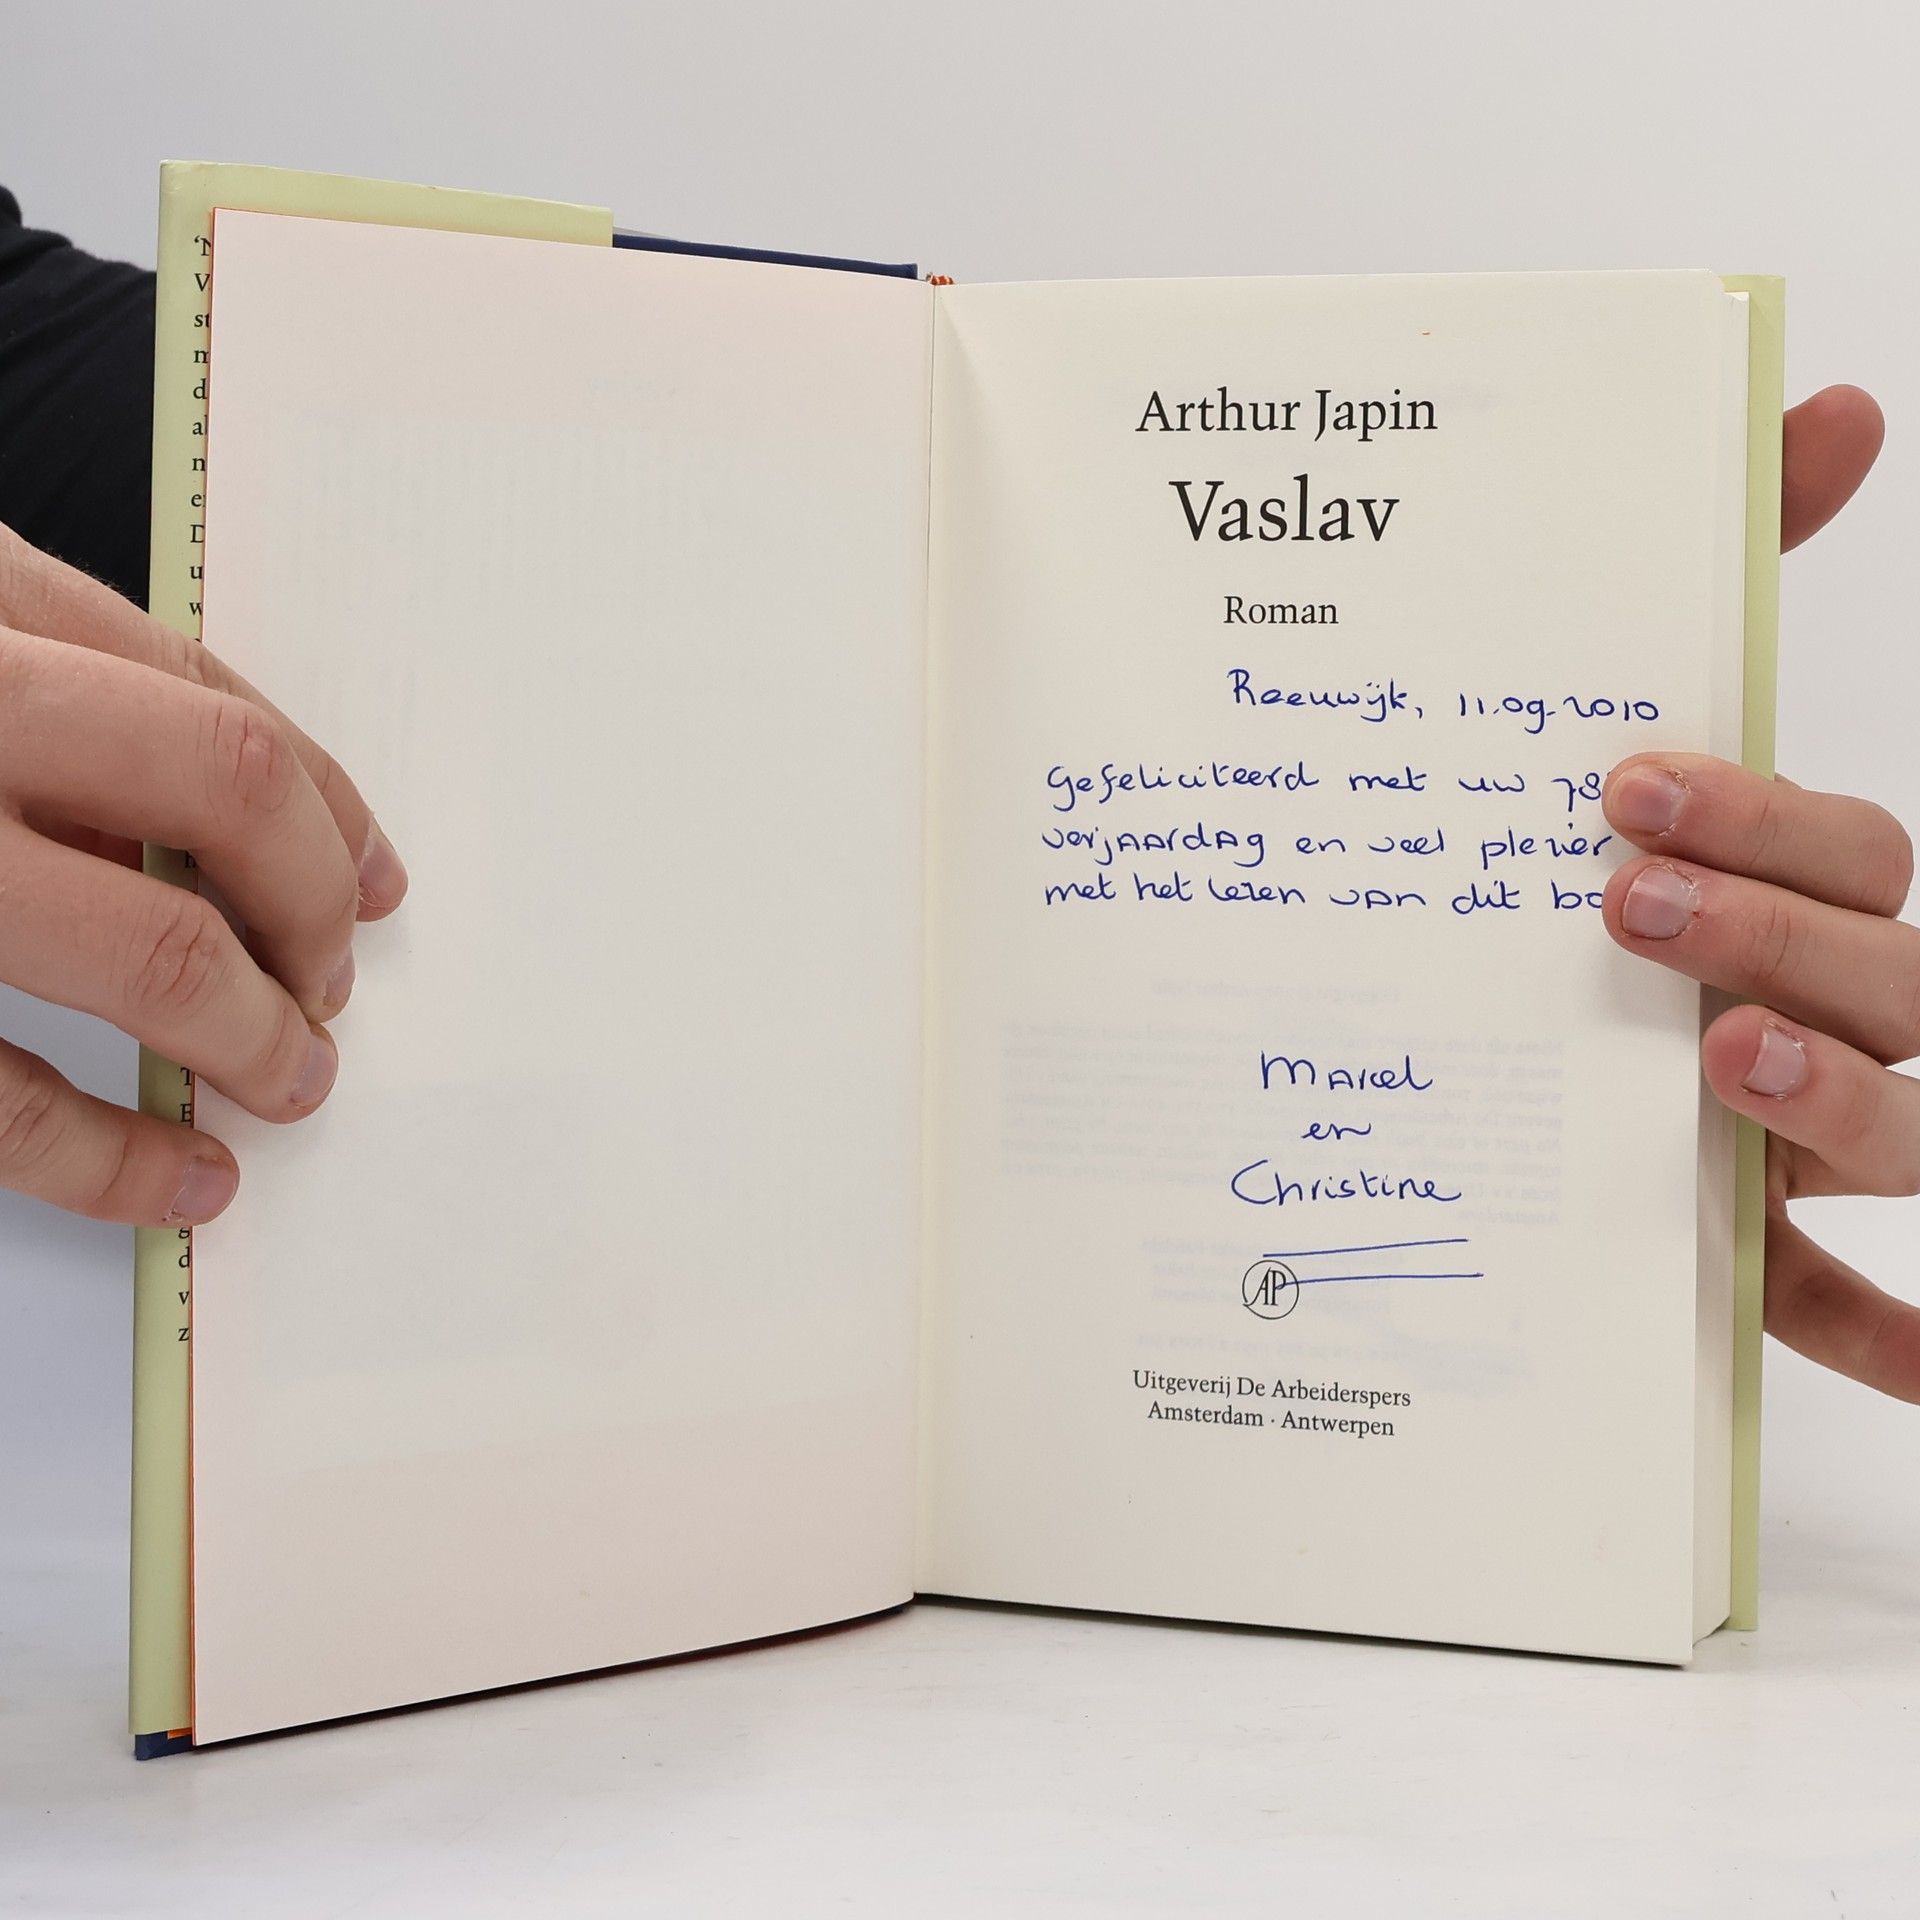 Arthur Japin
Vaslav
Roman
Reeuwijk, 11.09.2010
Gefeliciteerd met uw 78
verjaardag en veel plezier
met het lezen van dit bo
Marcel
en
Christine
AP
Uitgeverij De Arbeiderspers
Amsterdam · Antwerpen